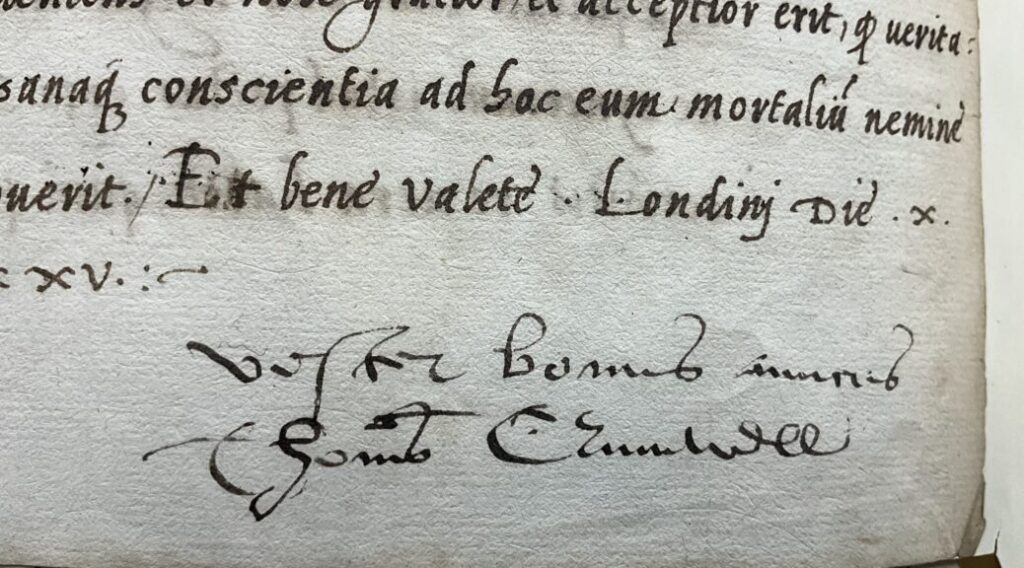 et gratior, et acceptior erit, ꝙ verita:
sanaq́ꝫ conscientia ad hoc eum mortaliū neminē
uerit. / Et bene valete. Londinj Die . x.
xxv. :~
vester bonus amicus
Thom͠s Crumwell